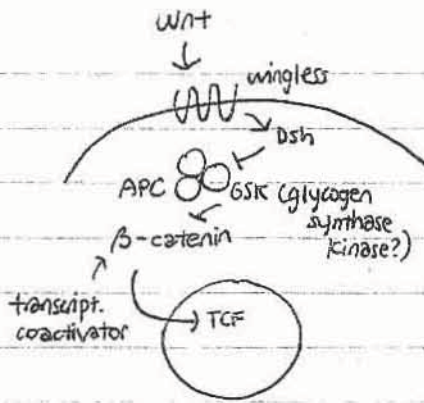 Wnt
wingless
Dsh
APC
GSK (glycogen
synthase
kinase?)
β-catenin
transcript.
coactivator
TCF